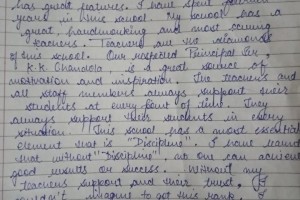 has great features. I have spent
years in this school. My school has a
great handworking and most caring
teachers. Teachers are the diamonds
of this school. Our respected Principal Sir,
K.K Chanaola, is a great source of
motivation and inspiration. The teachers and
all staff members always support their
students at every point of time. They
always support their students in every
situation. This school has a most essential
element that is "Discipline". I have learnt
that without "Discipline", no one can achieve
good results or success. Without my
teachers support and their trust, I
couldn't imagine to get this rank.